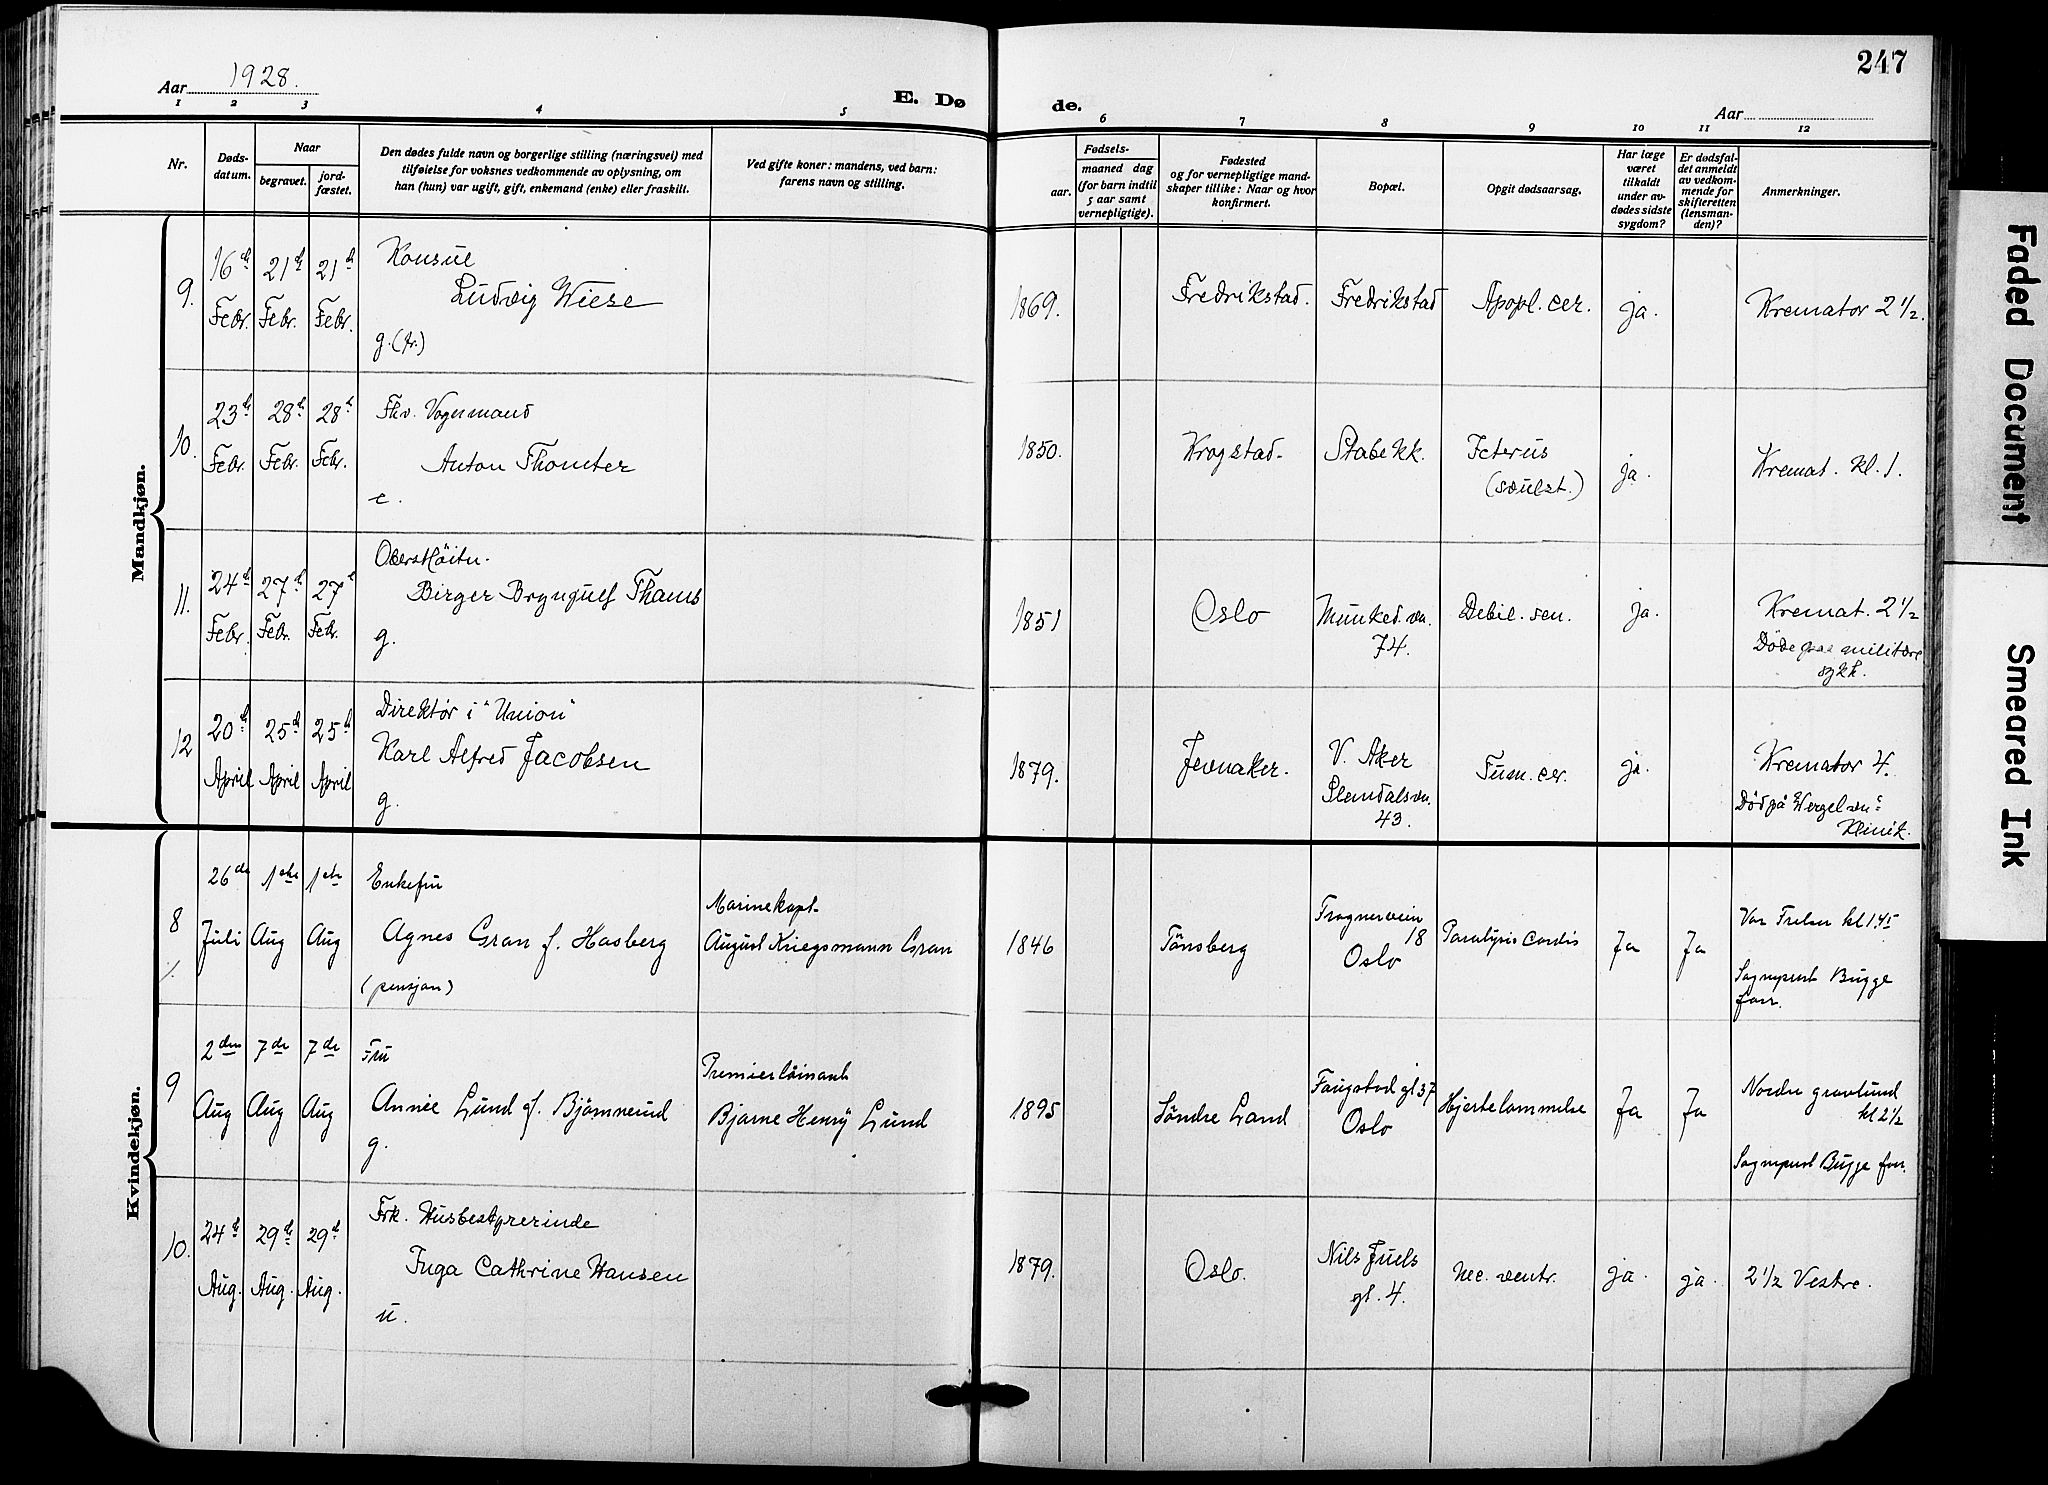 247
Aar 1928.
E. Døde.
Aar
1 2 3 4 5 6 7 8 9 10 11 12
Nr.
Døds-
datum.
Naar
begravet.
jord-
fæstet.
Den dødes fulde navn og borgerlige stilling (næringsvei) med
tilføielse for voksnes vedkommende av oplysning, om
han (hun) var ugift, gift, enkemand (enke) eller fraskilt.
Ved gifte koner: mandens, ved barn:
farens navn og stilling.
Fødsels-
aar.
maaned dag
(for barn indtil
5 aar samt
vernepligtige).
Fødested
og for vernepligtige mand-
skaper tillike: Naar og hvor
konfirmert.
Bopæl.
Opgit dødsaarsag.
Har læge
været
tilkaldt
under av-
dødes sidste
sygdom?
Er dødsfal-
det anmeldt
av vedkom-
mende for
skifteretten
(lensman-
den)?
Anmerkninger.
Mandkjøn.
9.
16de
Febr.
21de
Febr.
21de
Febr.
Konsul
Ludvig Wiese
g. (fr.)
1869.
Fredrikstad.
Fredrikstad
Apopl. cer.
ja.
Kremator 2 1/2.
10.
23de
Febr.
28de
Febr.
28de
Febr.
Fhv. Vognmand
Anton Thomter
e.
1850.
Krogstad.
Stabekk.
Icterus
(svulst.)
ja.
Kremat. kl. 1.
11.
24de
Febr.
27de
Febr.
27de
Febr.
Oberstløitn.
Birger Brynjulf Thams
g.
1851
Oslo
Munked.vn.
74.
Debil. sen.
ja.
Kremat. 2 1/2
Døde paa militære
sykh.
12
20de
April
25de
April
25de
April
Direktør i "Union"
Karl Alfred Jacobsen
g.
1879.
Jevnaker.
V. Aker
Slemdalsvn.
43.
Tum. cer.
ja.
Kremator 4.
Död på Wergel.vn:s
Klinik.
Kvindekjøn.
8
26de
Juli
1ste
Aug
1ste
Aug
Enkefru
Agnes Gran f. Hasberg
(pensjon)
Marinekapt.
August Kriegsmann Gran
1846
Tönsberg
Frognerveien
18
Oslo
Paralysis cordis
Ja
Ja
Vor Frelser kl 1.45
Sogneprest Bugge
forr.
9
2den
Aug
7de
Aug
7de
Aug
Fru
Annie Lund f. Bjömnerud
g.
Premierlöinant
Bjarne Henry Lund
1895
Söndre Land
Faugstad gt 37
Oslo
Hjertelammelse
Ja
Ja
Nordre gravlund
kl 2 1/2
Sogneprest Bugge forr.
10.
24de
Aug.
29de
Aug.
29de
Aug.
Frk. Husbestyrerinde
Inga Cathrine Hansen
u.
1879.
Oslo.
Nils Juels
gt. 4.
Ulc. ventr.
ja.
ja.
2 1/2 Vestre.
Faded Document
Smeared Ink